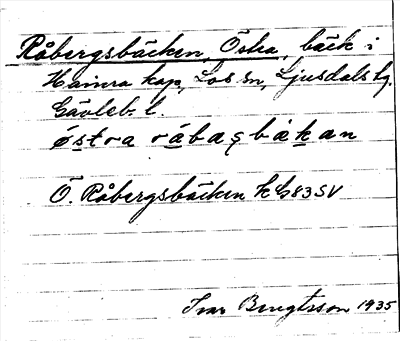 Råbergsbäcken, Östra, bäck i
Hamra kap., Los sn, Ljusdals tg.
Gävleb. l.
östra råbaçbäkan
Ö. Råbergsbäcken k G83SV
Ivar Bengtsson 1935